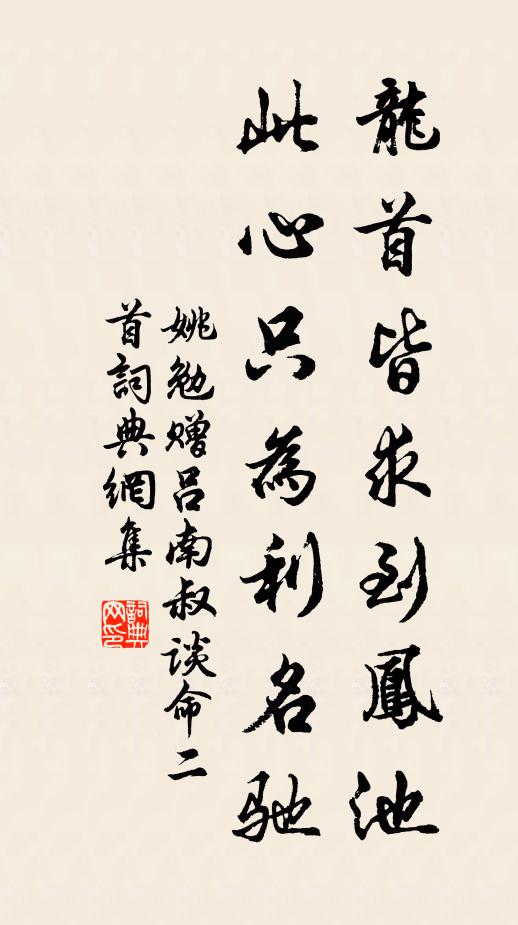 龍首皆求到鳳池
此心只為利名馳
姚勉贈呂南叔談命二
首詞典網集
詞典
网印